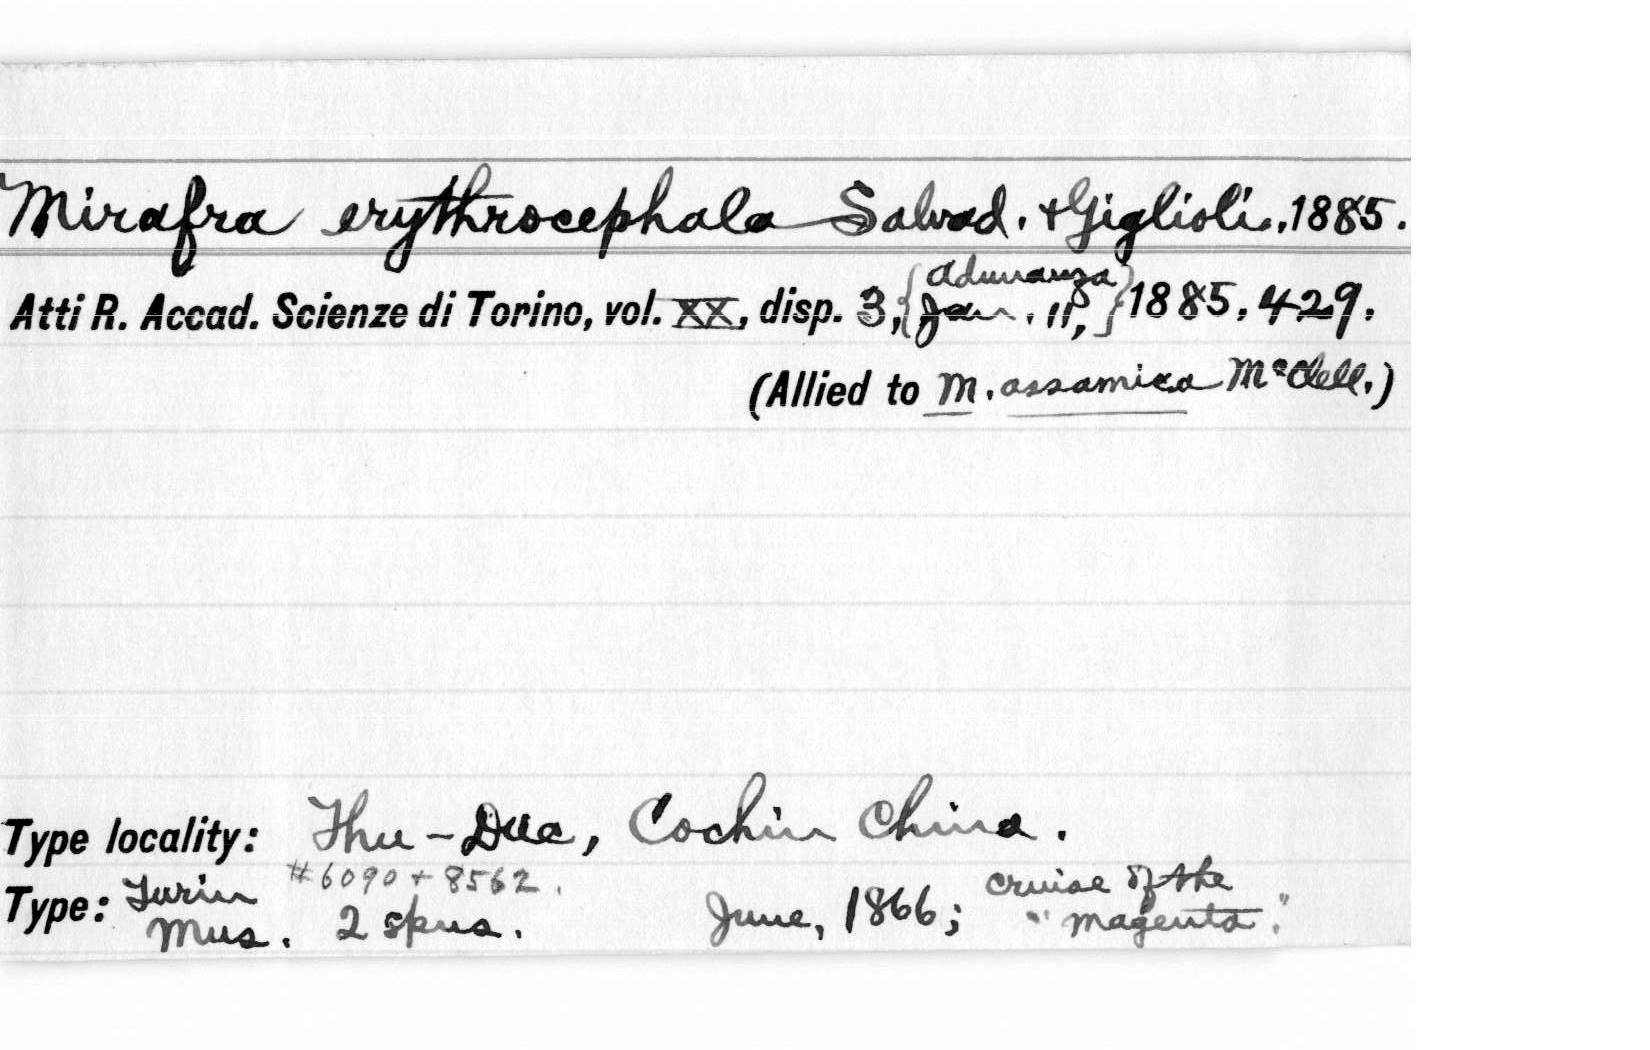 Mirafra erythrocephala Salvad. + Giglioli, 1885.
Atti R. Accad. Scienze di Torino, vol. XX, disp. 3, {adunanza Jan. 11,} 1885, 429.
(Allied to M. assamica McClell.)
Type locality: Thu-Duc, Cochin China.
#6090 + 8562.
Type: Turin Mus. 2 spns. June, 1866; cruise of the "Magenta."